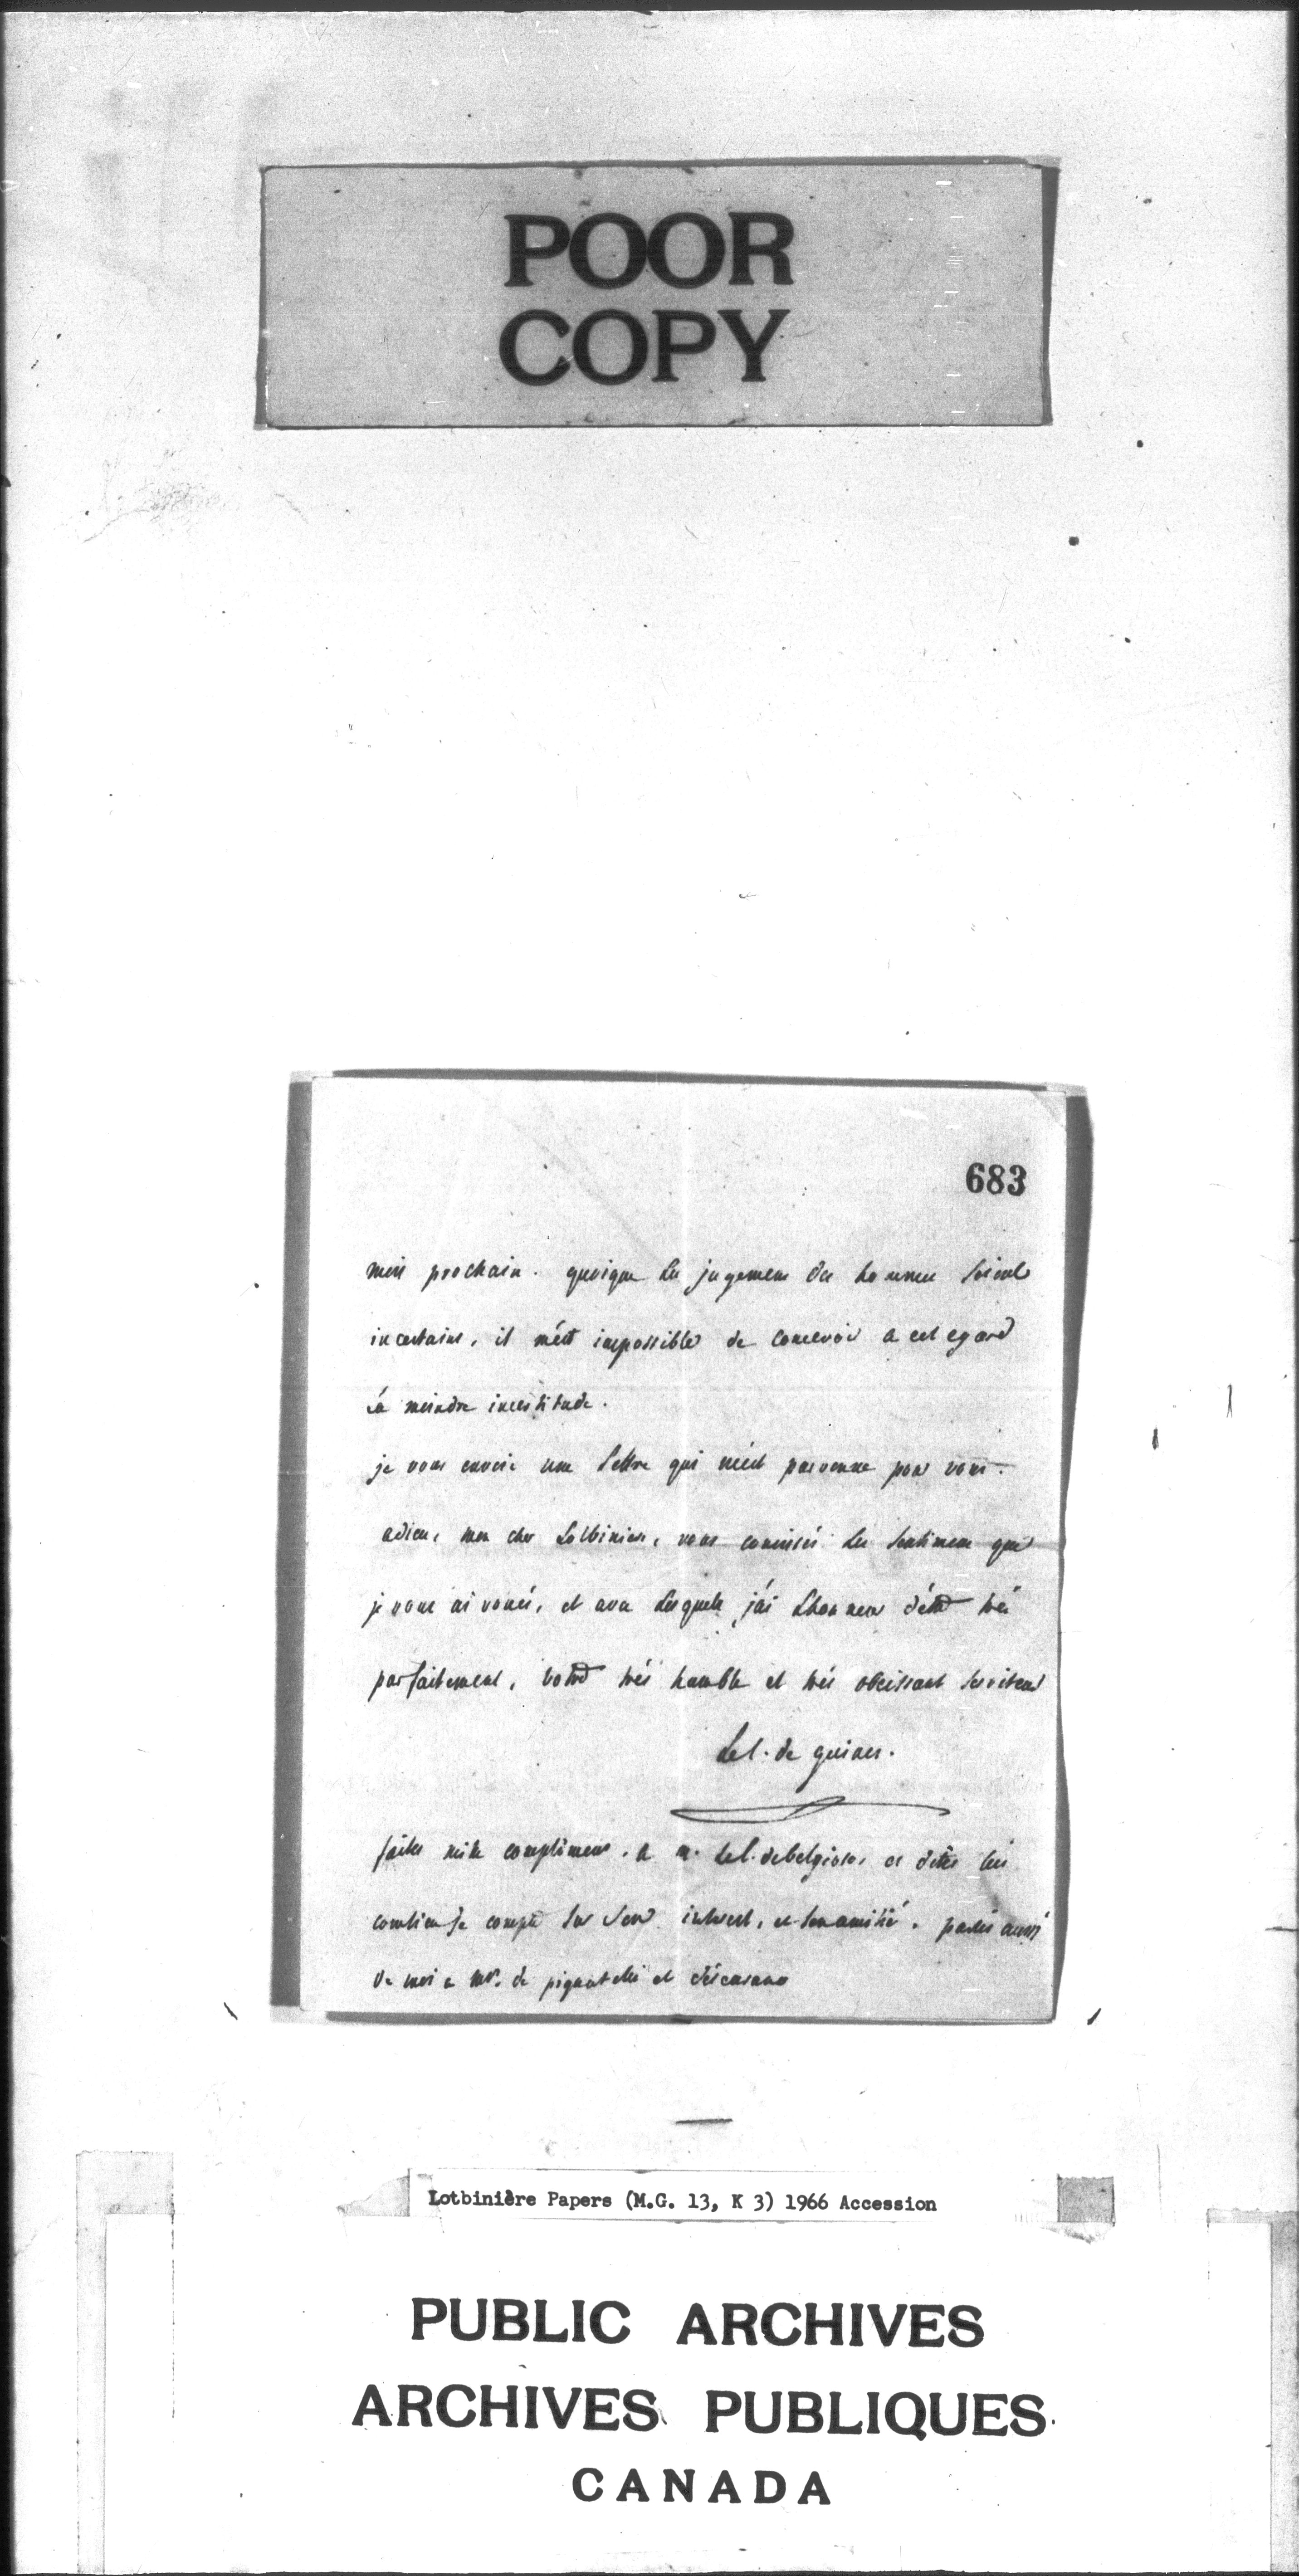 POOR
COPY
683
mois prochain. quoique les jugemens des hommes soient
incertains, il m'est impossible de concevoir a cet egard
la moindre incertitude.
je vous envoie une lettre qui m'est parvenue pour vous.
adieu, mon cher Lotbiniere, vous connoisés les sentimens que
je vous ai voués, et avec lesquels j'ai l'honneur d'etre très
parfaitement, votre très humble et très obeissant serviteur
Le c. de guines.
faites mille complimens, a m. le c. de belgioso, et dites lui
combien je compte sur son interest, et son amitié. parlés aussi
de moi a mrs. de pignatelli et
Lotbinière Papers (M.G. 13, K 3) 1966 Accession
PUBLIC ARCHIVES
ARCHIVES PUBLIQUES
CANADA